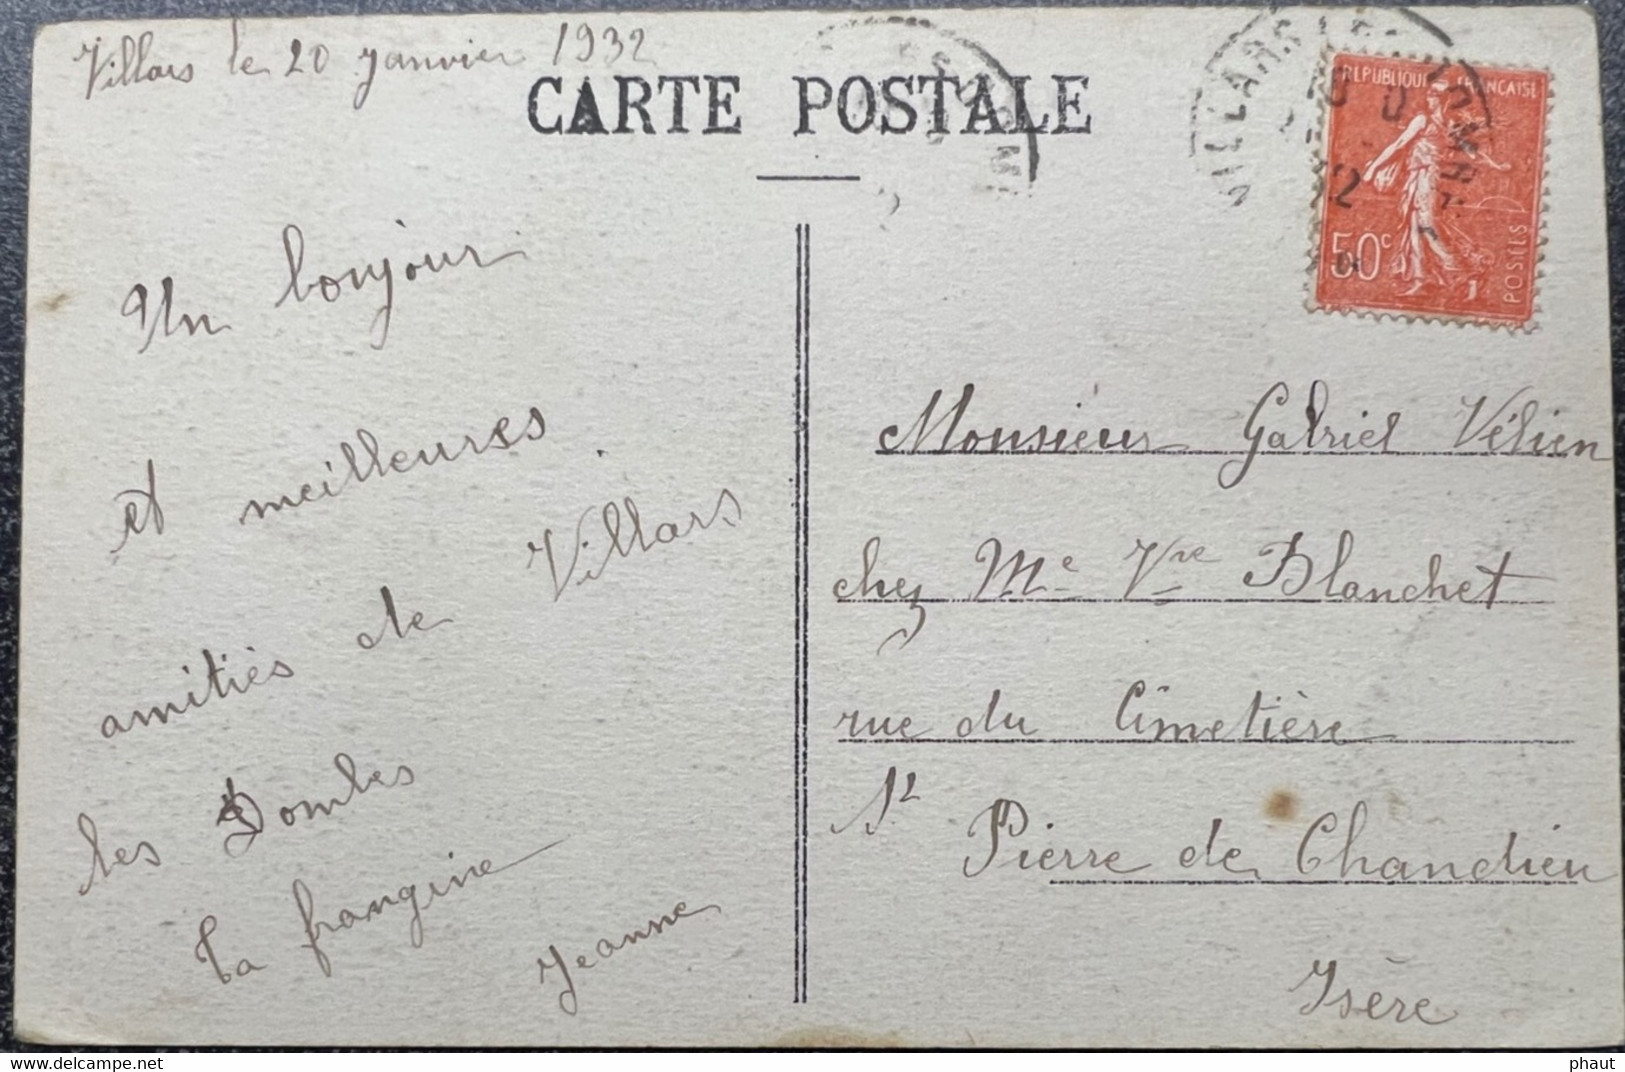 Villars le 20 Janvier 1932
CARTE POSTALE
RÉPUBLIQUE FRANÇAISE
50c
POSTES
Un bonjour
et meilleures
amitiés de Villars
les Dombes
Ta frangine
Jeanne
Monsieur Gabriel Vélien
chez Me Vve Blanchet
rue du Cimetière
St Pierre de Chandieu
Isère
phaut